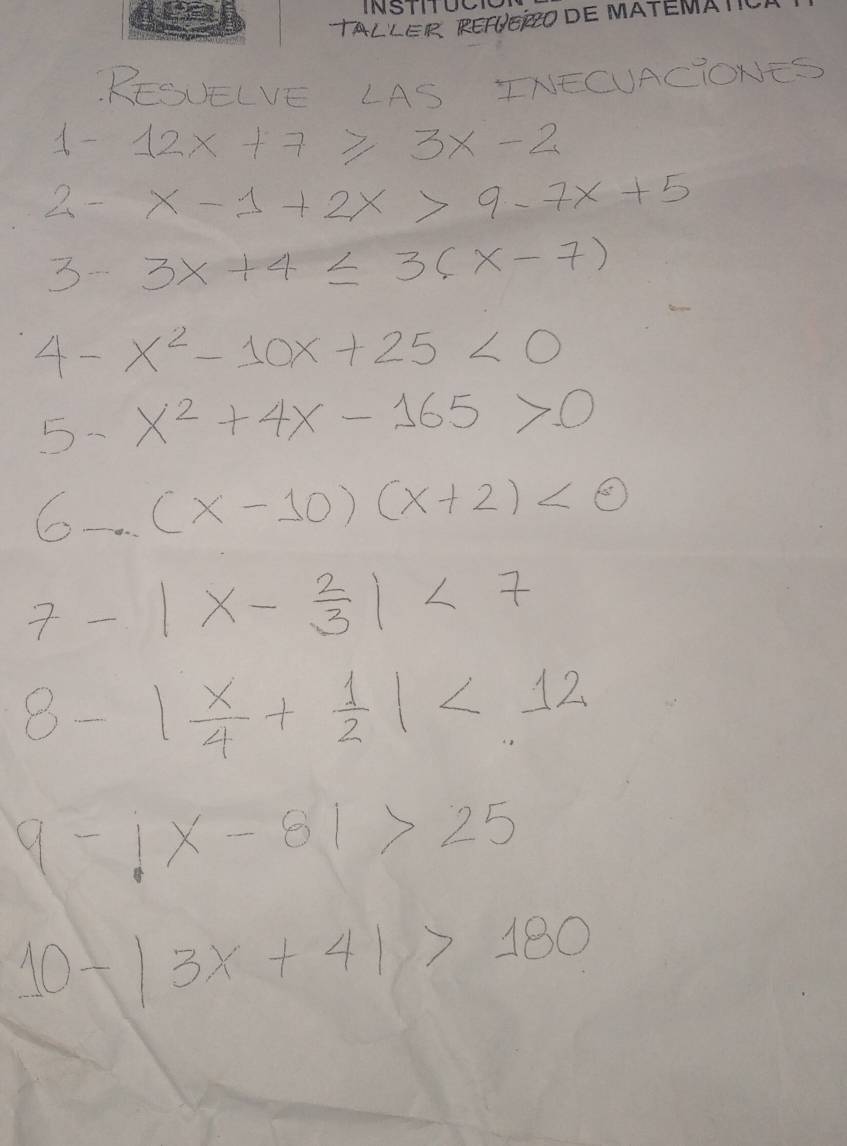 TALLER REFUERZO DE MATEMATICA
RESUELVE LAS INECUACIONES
1- 12x + 7 ≥ 3x - 2
2- x - 1 + 2x > 9 - 7x + 5
3- 3x + 4 ≤ 3(x - 7)
4- x² - 10x + 25 < 0
5- x² + 4x - 165 > 0
6- (x - 10)(x + 2) < 0
7- |x - 2/3| < 7
8- |x/4 + 1/2| < 12
9- |x - 8| > 25
10- |3x + 4| > 180